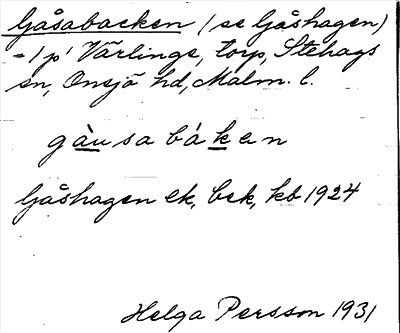 Gåsabacken (se Gåshagen)
= 1 p' Värlinge, torp, Stehags
sn, Onsjö hd, Malm. l.
gàusa bákan
Gåshagen ek, bek, kb 1924
Helga Persson 1931